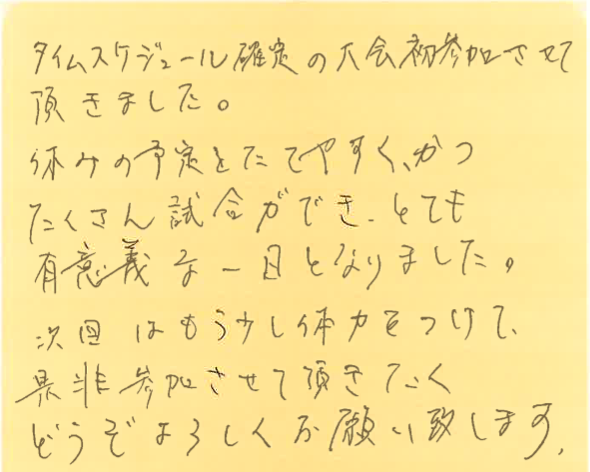 タイムスケジュール確定の大会初参加させて
頂きました。
休みの予定をたてやすく、かつ
たくさん試合ができ、とても
有意義な一日となりました。
次回はもう少し体力をつけて、
是非参加させて頂きたく
どうぞよろしくお願い致します。